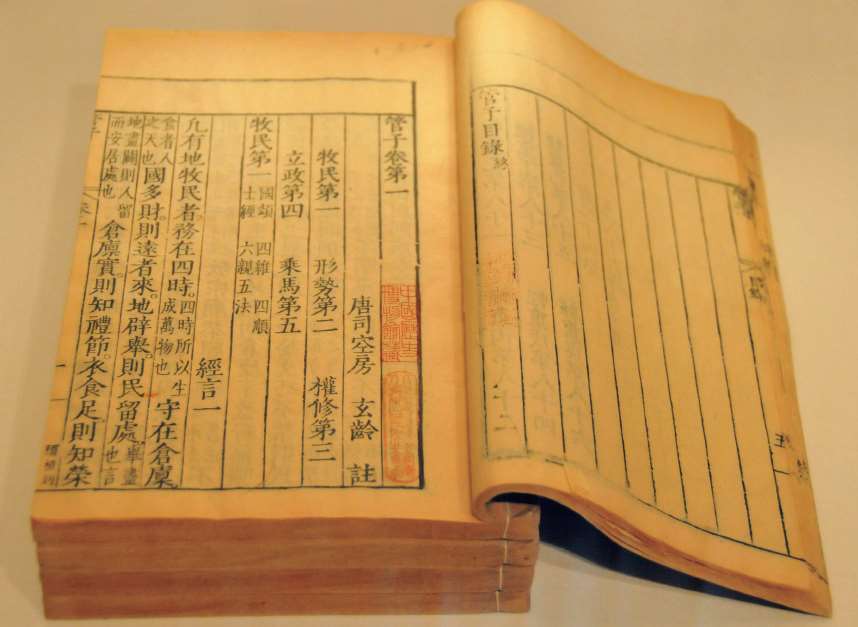 管子目錄終
管子卷第一
唐司空房 玄齡 註
牧民第一 形勢第二 權修第三
立政第四 乘馬第五
牧民第一 國頌 四維 四順 士經 六親五法
經言一
凡有地牧民者。務在四時。四時所以生成萬物也守在倉廩。
食者人之天也國多財。則遠者來。地辟舉。則民留處。舉盡也言
地盡闢則人留而安居處也倉廩實。則知禮節。衣食足。則知榮